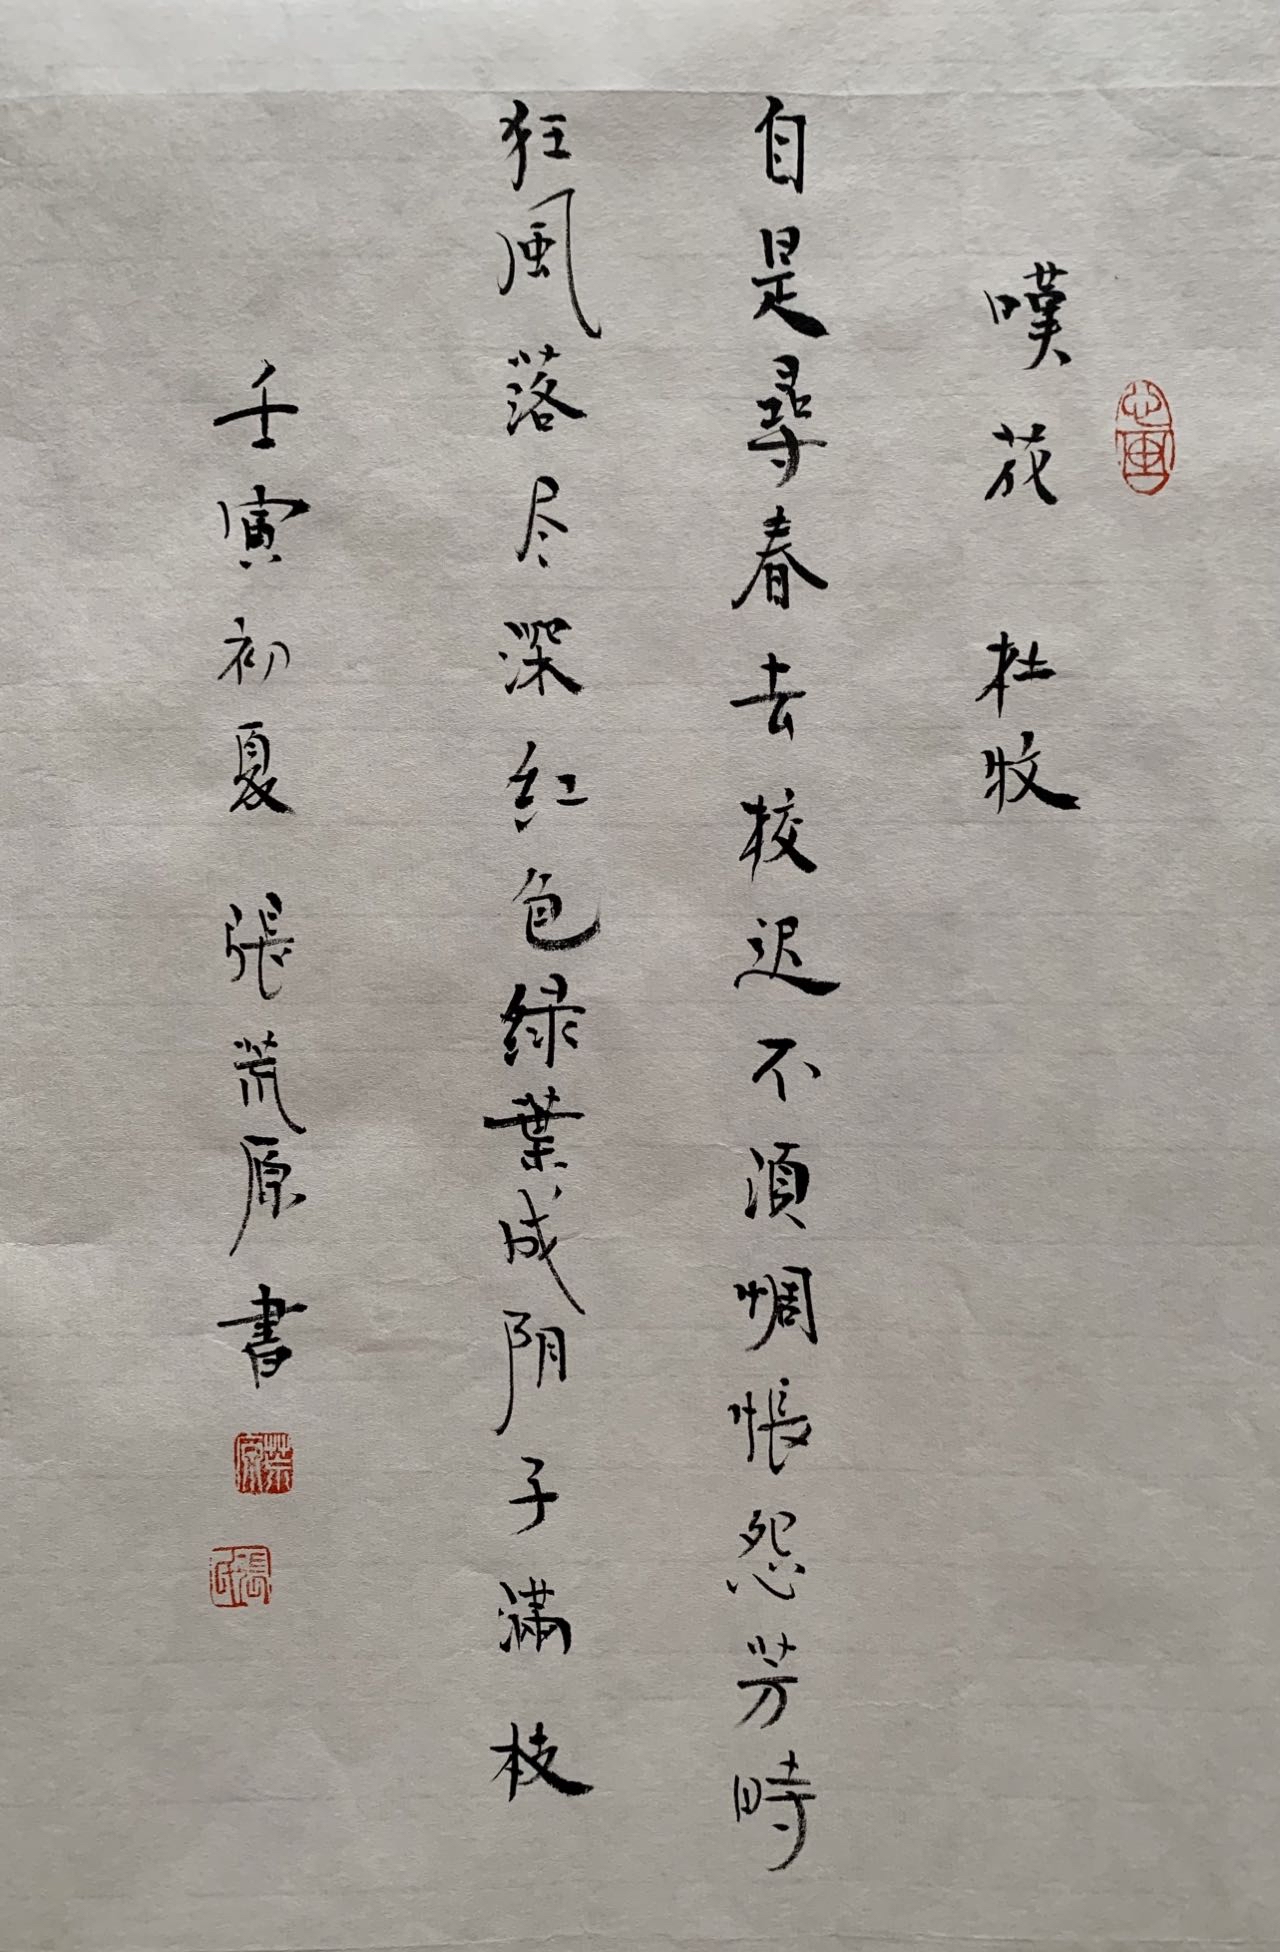 嘆花 杜牧
自是尋春去校迟不須惆悵怨芳時
狂風落尽深紅色緑葉成阴子滿枝
壬寅初夏 張荒原書
荒原
張